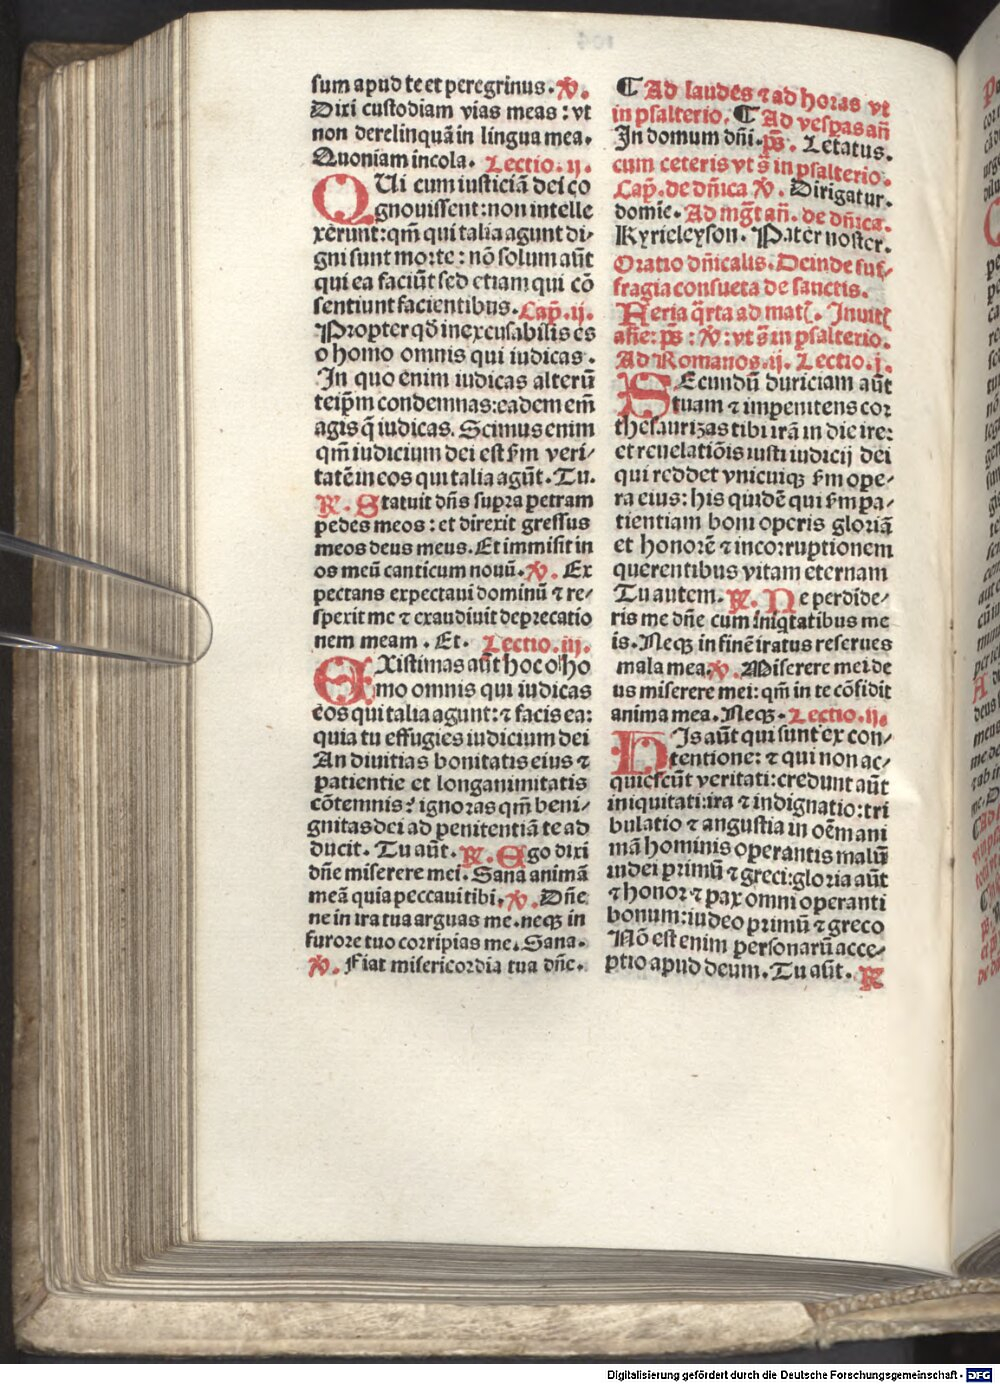 sum apud te et peregrinus. ℣.
Dixi custodiam vias meas: vt
non derelinquā in lingua mea.
Quoniam incola. Lectio. ij.
QUi cum iusticiā dei co
gnouissent: non intelle
xerunt: qm̄ qui talia agunt di⸗
gni sunt morte: nō solum aūt
qui ea faciūt sed etiam qui cō
sentiunt facientibus. Cap̄. ij.
Propter qd̄ inexcusabilis es
o homo omnis qui iudicas.
In quo enim iudicas alterū
teip̄m condemnas: eadem em̄
agis q̄ iudicas. Scimus enim
qm̄ iudicium dei est ẜm veri⸗
tatē in eos qui talia agūt. Tu.
℟. Statuit dn̄s supra petram
pedes meos: et direxit gressus
meos deus meus. Et immisit in
os meū canticum nouū. ℣. Ex
pectans expectaui dominū ⁊ re⸗
spexit me ⁊ exaudiuit deprecatio
nem meam. Et. Lectio. iij.
EXistimas aūt hoc o ho
mo omnis qui iudicas
eos qui talia agunt: ⁊ facis ea:
quia tu effugies iudicium dei
An diuitias bonitatis eius ⁊
patientie et longanimitatis
cōtemnis? ignoras qm̄ beni⸗
gnitas dei ad penitentiā te ad
ducit. Tu aūt. ℟. Ego dixi
dn̄e miserere mei. Sana animā
meā quia peccaui tibi. ℣. Dn̄e
ne in ira tua arguas me. neqꝫ in
furore tuo corripias me. Sana.
℣. Fiat misericordia tua dn̄e.
¶ Ad laudes ⁊ ad horas vt
in psalterio. ¶ Ad vesperas an̄
In domum dn̄i. ps̄. Letatus.
cum ceteris vt s̄ in psalterio.
Cap̄. de dn̄ica ℣. Dirigatur.
domine. Ad mg̅t an̄. de dn̄ica.
Kyrieleyson. Pater noster.
Oratio dn̄icalis. Deinde suf⸗
fragia consueta de sanctis.
Feria q̄rta ad matꝭ. Inuitꝭ
an̄e: ps̄: ℣: vt s̄ in psalterio.
Ad Romanos. ij. Lectio. j.
SEcundū duriciam aūt
tuam ⁊ impenitens cor
thesaurizas tibi irā in die ire:
et reuelatiōis iusti iudicij dei
qui reddet vnicuiqꝫ ẜm ope⸗
ra eius: his quidē qui ẜm pa⸗
tientiam boni operis gloriā
et honorē ⁊ incorruptionem
querentibus vitam eternam
Tu autem. ℟. Ne perdide⸗
ris me dn̄e cum iniqtatibus me
is. Neqꝫ in finē iratus reserues
mala mea. ℣. Miserere mei de
us miserere mei: qm̄ in te cōfidit
anima mea. Neqꝫ. Lectio. ij.
HIs aūt qui sunt ex con⸗
tentione: ⁊ qui non ac⸗
quiescūt veritati: credunt aūt
iniquitati: ira ⁊ indignatio: tri
bulatio ⁊ angustia in oēm ani
mā hominis operantis malū
iudei primū ⁊ greci: gloria aūt
⁊ honor ⁊ pax omni operanti
bonum: iudeo primū ⁊ greco
Nō est enim personarū acce⸗
ptio apud deum. Tu aūt. ℟
Digitalisierung gefördert durch die Deutsche Forschungsgemeinschaft - DFG